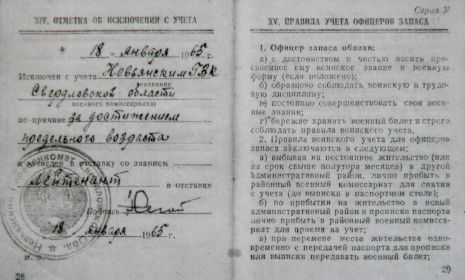 XIV. ОТМЕТКА ОБ ИСКЛЮЧЕНИИ С УЧЕТА
„18“ января 1965 г.
Исключен с учета Невьянским ГВК
название
Свердловской области
военного комиссариата
по причине за достижением
предельного возраста
и зачислен в отставку со званием
лейтенант в отставке
Подпись
„18“ января 1965 г.
М. п.
28
Серия У
XV. ПРАВИЛА УЧЕТА ОФИЦЕРОВ ЗАПАСА
1. Офицер запаса обязан:
а) с достоинством и честью носить при-
своенное ему воинское звание и военную
форму (если положено);
б) образцово соблюдать воинскую и тру-
довую дисциплину;
в) постоянно совершенствовать свои воен-
ные знания;
г) бережно хранить военный билет и строго
соблюдать правила воинского учета.
2. Правила воинского учета для офицеров
запаса заключаются в следующем:
а) выбывая на постоянное жительство (или
на срок свыше полутора месяцев) в другой
административный район, лично прибыть в
районный военный комиссариат для снятия
с учета (до выписки в паспортном столе);
б) по прибытии на жительство в новый
административный район и прописке паспорта
лично прибыть в районный военный комисса-
риат для приема на учет;
в) при перемене места жительства одно-
временно с передачей паспорта для прописки
или выписки передавать военный билет;
29